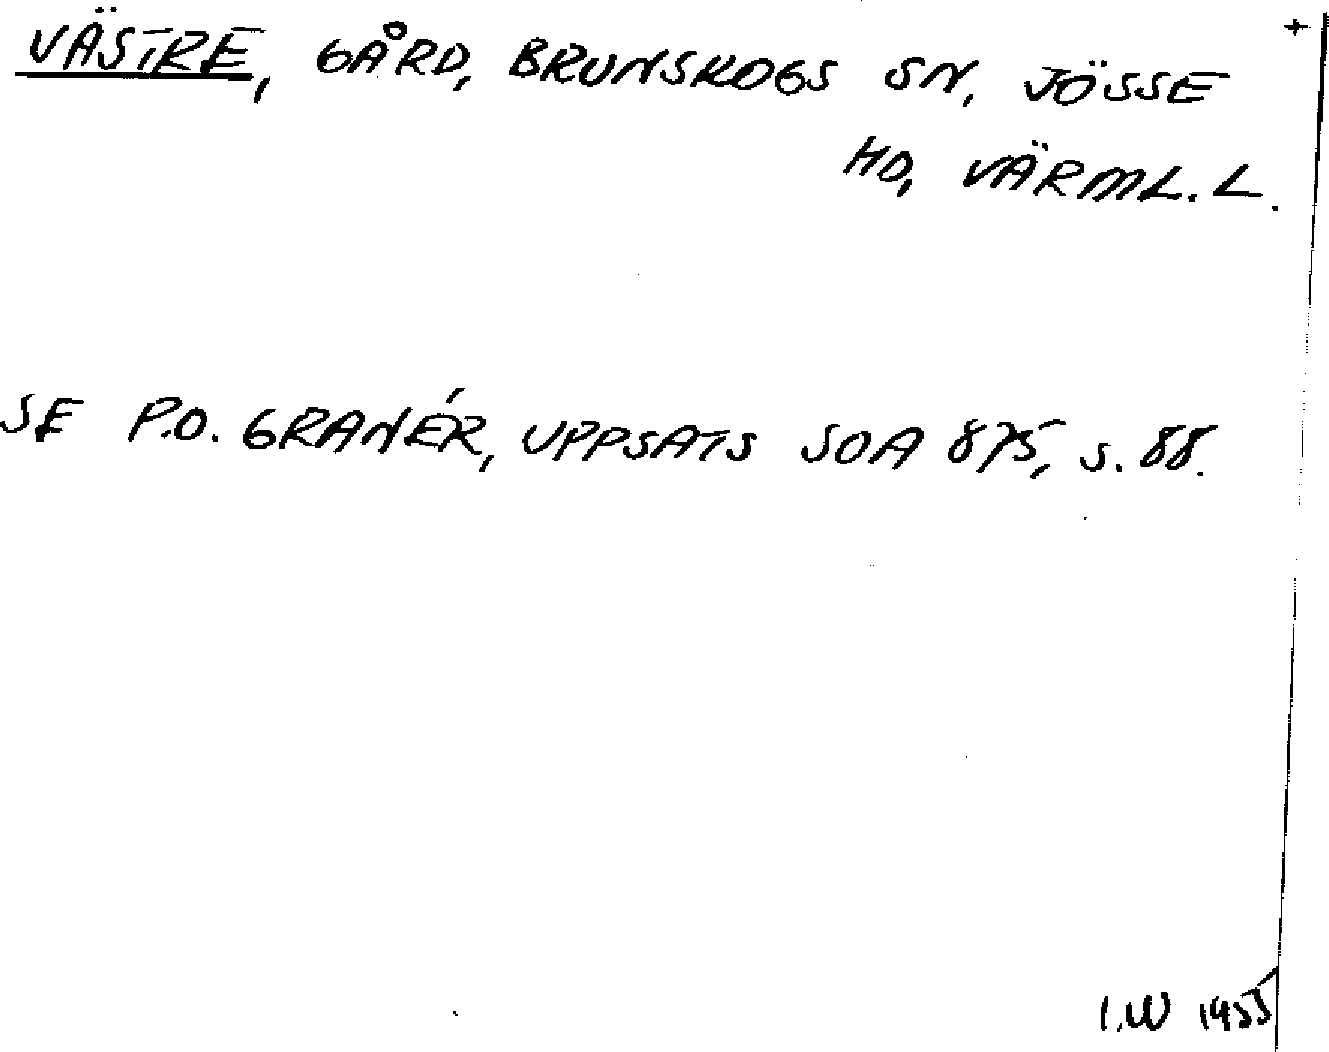 VÄSTRE, GÅRD, BRUNSKOGS SN, JÖSSE +
HD, VÄRML. L.
SE P.O. GRANÉR, UPPSATS SOA 875, S. 88.
I.W 1955